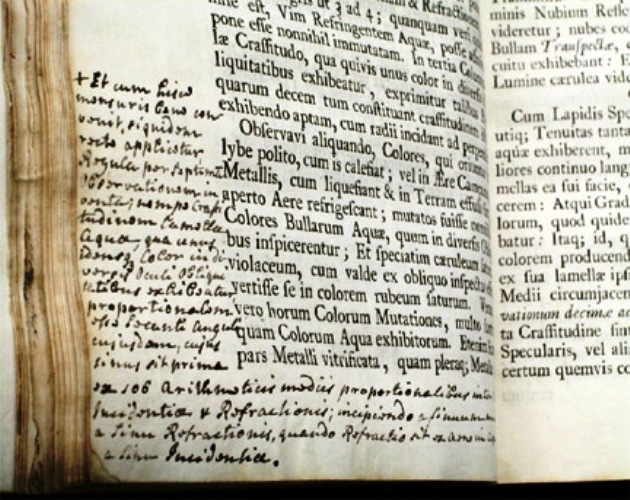 ut 3 ad 4; quanquam
nihe est, Vim Refringentem Aquæ, posse
pone esse nonnihil immutatam. In tertia
læ Crassitudo, qua quivis unus color in
liquitatibus exhibeatur, exprimitur talibus
quarum decem tum constituant crassitudinem
exhibendo aptam, cum radii incidant ad
Observavi aliquando, Colores, qui
lybe polito, cum is calefiat; vel in Ære
Metallis, cum liquefiant & in Terram
aperto Aere refrigescant; mutatos fuisse
Colores Bullarum Aquæ, quum in diversis
bus inspicerentur; Et speciatim cæruleum
violaceum, cum valde ex obliquo
vertisse se in colorem rubeum saturum.
vero horum Colorum Mutationes, multo
quam Colorum Aqua exhibitorum. Etenim
pars Metalli vitrificata, quam pleraq;
+ Et cum hisce
mensuris bene con
venit, siquidem
recte applicetur
Regula per septimam
Observationem in
venta; nempe Crassi
tudinem Lamellæ
Aqueæ, qua unus
idemq; Color in di
versis Oculi Obliqui
tatibus exhibeatur,
proportionalem
esse Secanti anguli
cujusdam, cujus
sinus sit prima
ex 106 Arithmeticis mediis proportionalibus inter
Incidentiæ & Refractionis; incipiendo a sinuum
a Sinu Refractionis, quando Refractio sit ex aere in
a Sinu Incidentiæ.
minis Nubium
videretur; nubes
Bullam Transpectæ,
cuitu exhibebant:
Lumine cærulea
Cum Lapidis
utiq; Tenuitas
aquæ exhiberent,
liores continuo
mellas ea sui facie,
cerem: Atqui
lorum, quod
batur: Itaq; id,
colorem
ex sua lamellæ
Medii
vationum decimæ
ta Crassitudine
Specularis, vel
certum quemvis